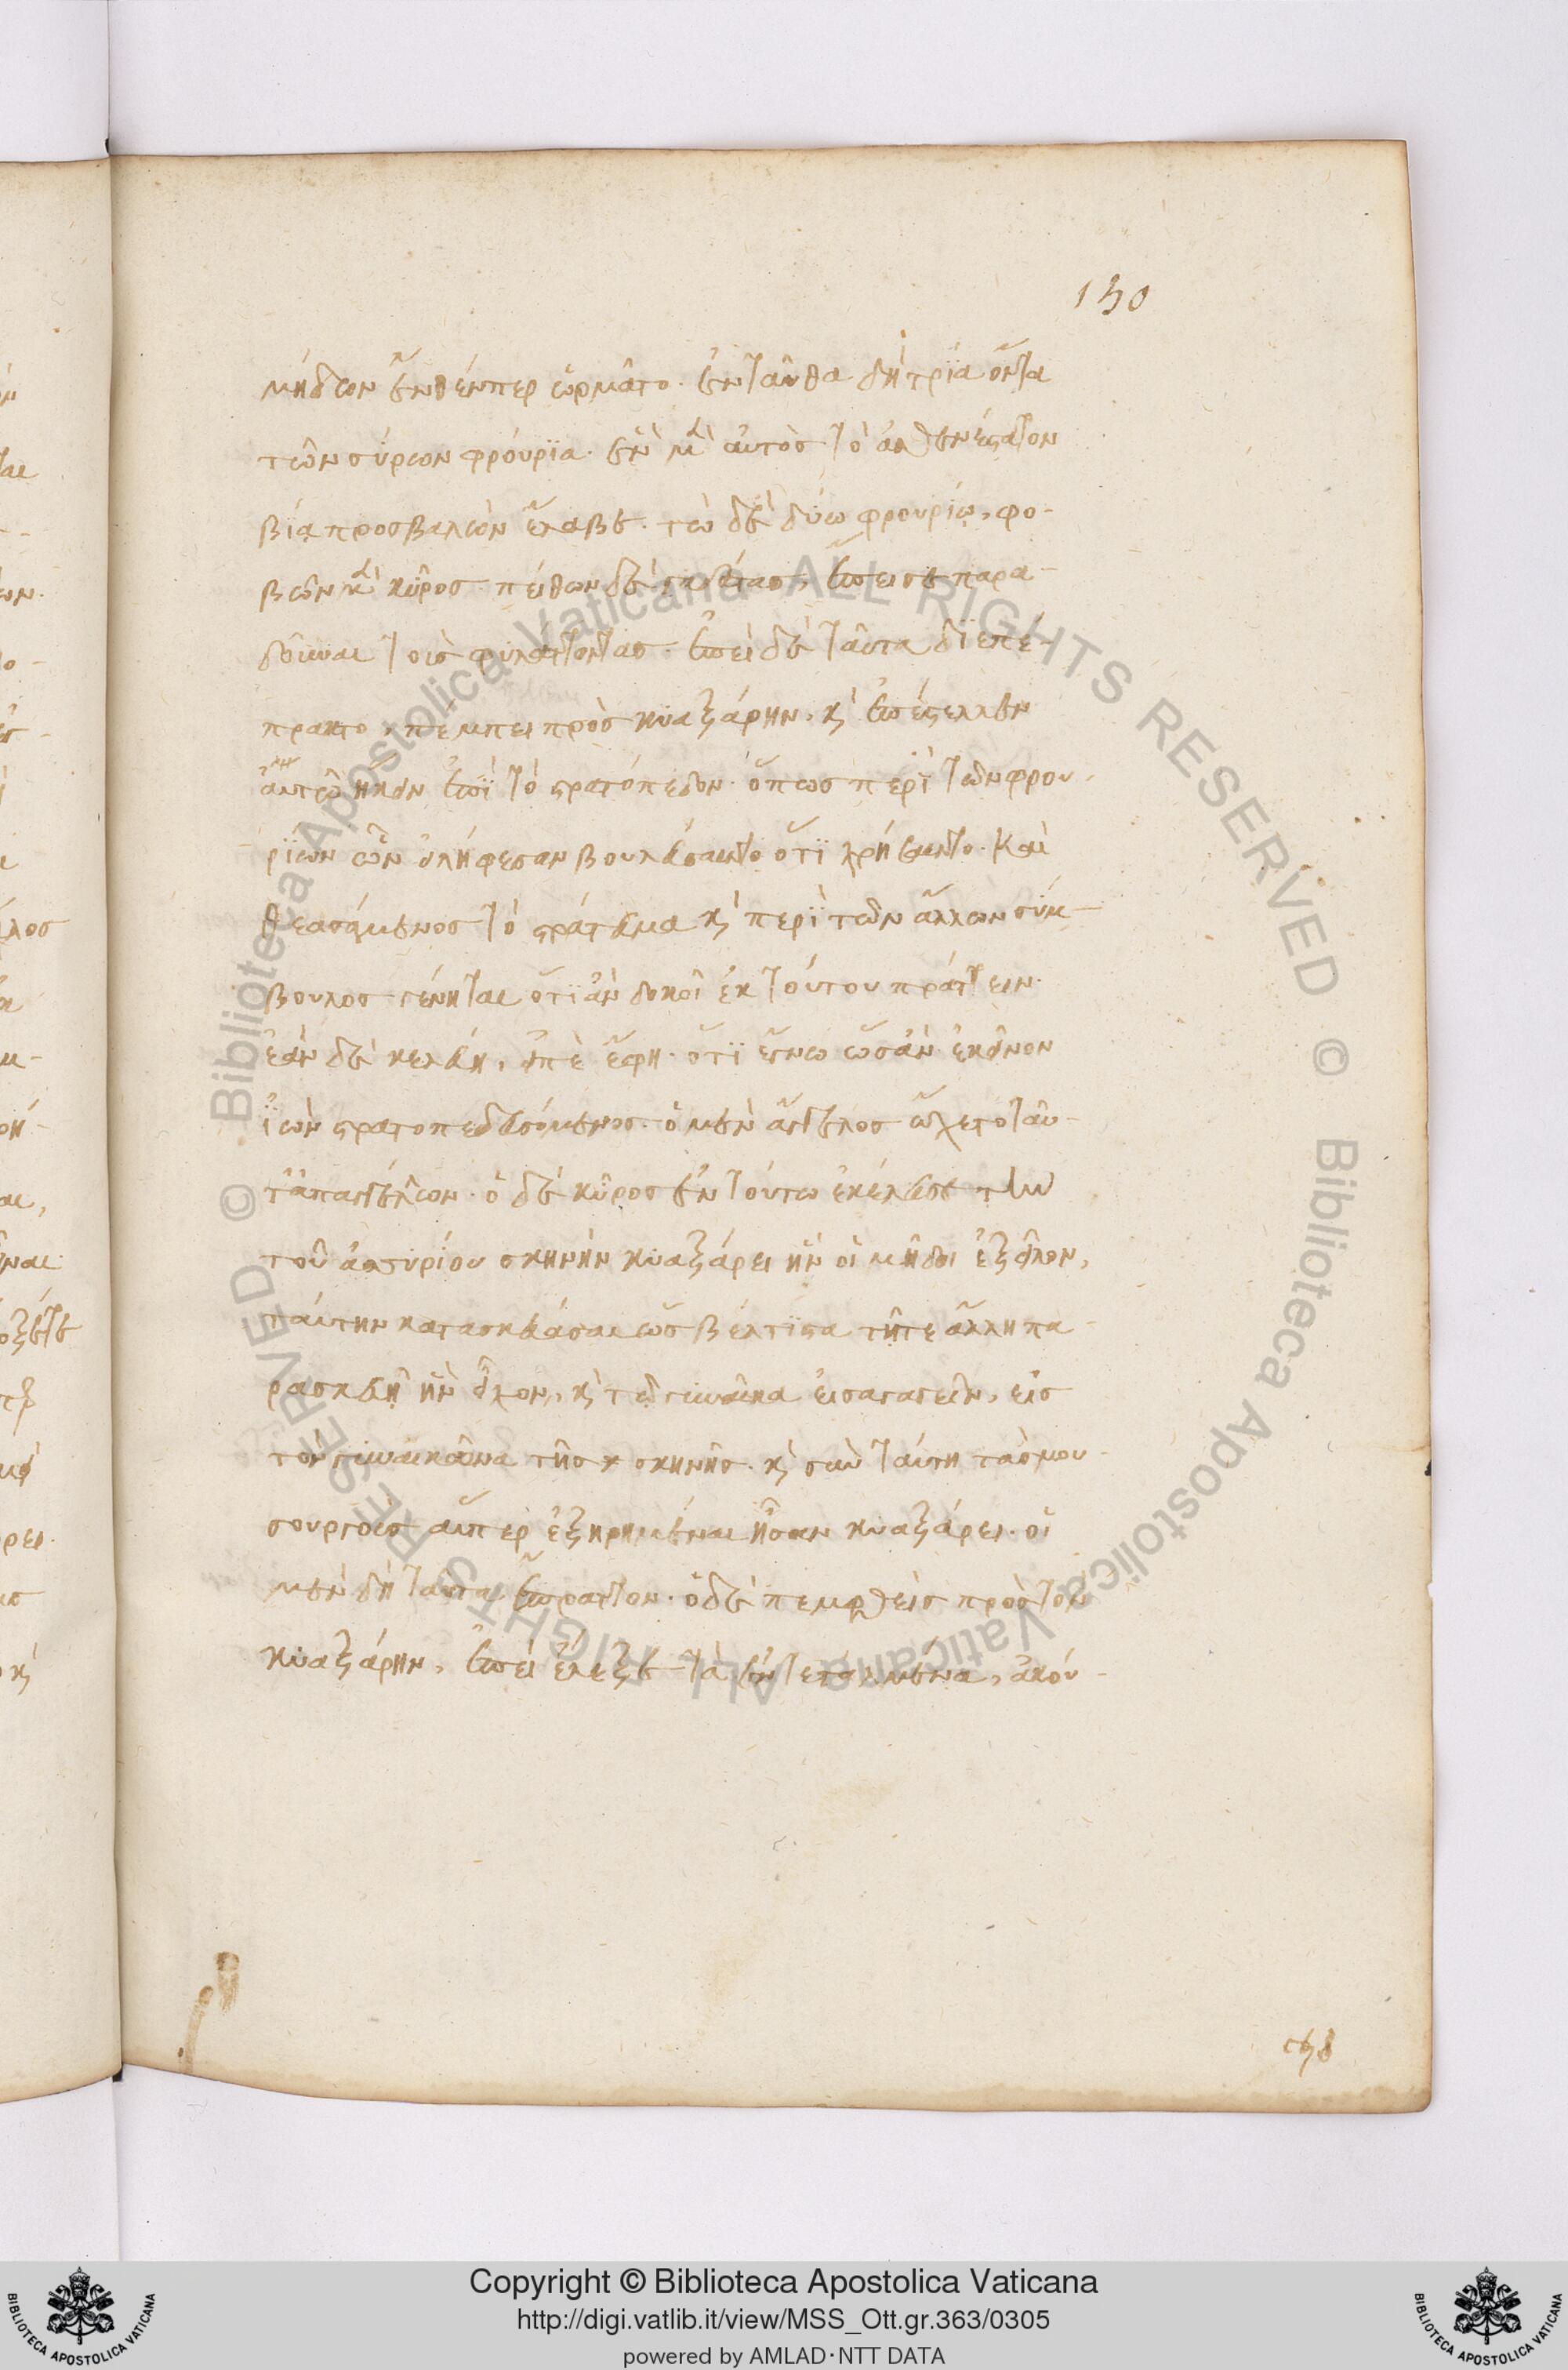 150
μήδων ἔνθένπερ ὡρμᾶτο. ἐνταῦθα δὴ τρία ὄντα
τῶν σύρων φρούρϊα. ἓν μὲν αὐτὸς τὸ ἀσθενέστατον
βίᾳ προσβαλὼν ἔλαβε. τὼ δὲ δύω φρουρίω, φο-
βῶν μὲν κῦρος πείθων δὲ γαδάτας, ἔπεισε παρα-
δοῦναι τοὺς φυλάττοντας. ἐπεὶ δὲ ταῦτα δϊεπέ-
πρακτο, πέμπει πρὸς κυαξάρην, κὶ ἐπέστελλεν
αὐτῶ ἥκειν ἐπϊ τὸ στρατόπεδον. ὅπως περϊ τῶν φρου-
ρϊων ὧν εἰλήφεσαν βουλεύσαιντο ὅτϊ χρήσαιντο. Καὶ
θεασάμενος τὸ στράτευμα κὶ περϊ τῶν ἄλλων σύμ-
βουλος γένηται ὅτϊ ἂν δοκοῖ ἐκ τούτου πράττειν.
ἐὰν δὲ κελεύη, εἰπὲ ἔφη. ὅτϊ ἔγνω ὡσὰν ἐκεῖνον
ϊὼν στρατοπεδευσόμενος. ὁ μὲν ἄγγελος ᾤχετο ταῦ-
τ' ἀπαγγελῶν. ὁ δὲ κῦρος ἐν τούτω ἐκέλευσε τὴν
τοῦ ἀσσυρίου σκηνὴν κυαξάρει ἣν οἱ μῆδοι ἐξεῖλον,
ταύτην κατασκευάσαι ὡς βέλτϊστα τῇτε ἄλλη πα-
ρασκευῇ ἣν εἶχον, κὶ τὼ γυναῖκα εἰσαγαγεῖν, εἰς
τὸν γυναικῶνα τῆς σκηνῆς. κὶ σὺν ταύτη τὰς μου-
σουργοὺς αἵπερ ἐξηρημέναι ἦσαν κυαξάρει. οἱ
μὲν δὴ ταῦτα ἔπραττον. ὁ δὲ πεμφθεὶς πρὸς τὸν
κυαξάρην, ἐπεὶ ἔλεξε τὰ ἐντεταλμένα, ἀκού-
Copyright © Biblioteca Apostolica Vaticana
http://digi.vatlib.it/view/MSS_Ott.gr.363/0305
powered by AMLAD·NTT DATA
© Biblioteca Apostolica Vaticana ALL RIGHTS RESERVED
© Biblioteca Apostolica Vaticana ALL RIGHTS RESERVED
BIBLIOTECA APOSTOLICA VATICANA
BIBLIOTECA APOSTOLICA VATICANA